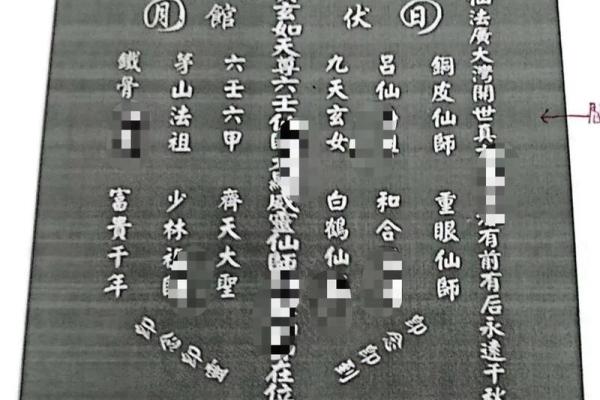 法廣大灣開世真
有前有后永遠千秋
日
伏
館
月
銅皮仙師
重眼仙師
呂仙
和合
九天玄女
白鶴仙
玄如天尊六壬仙
威靈仙師
在位
六壬六甲
齊天大聖
茅山法祖
少林祖
鐵骨
富貴千年
叩念即到
叩念即靈